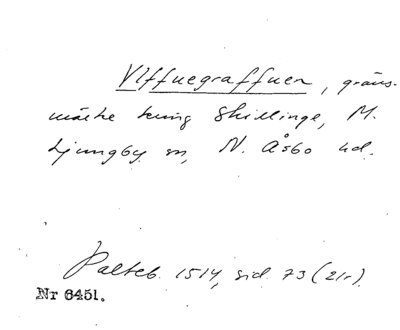 Vlffuegraffuen, gräns-
märke kring Skillinge, M.
Ljungby sn, N. Åsbo hd.
Palteb. 1514, sid 73 (21r).
Nr 6451.